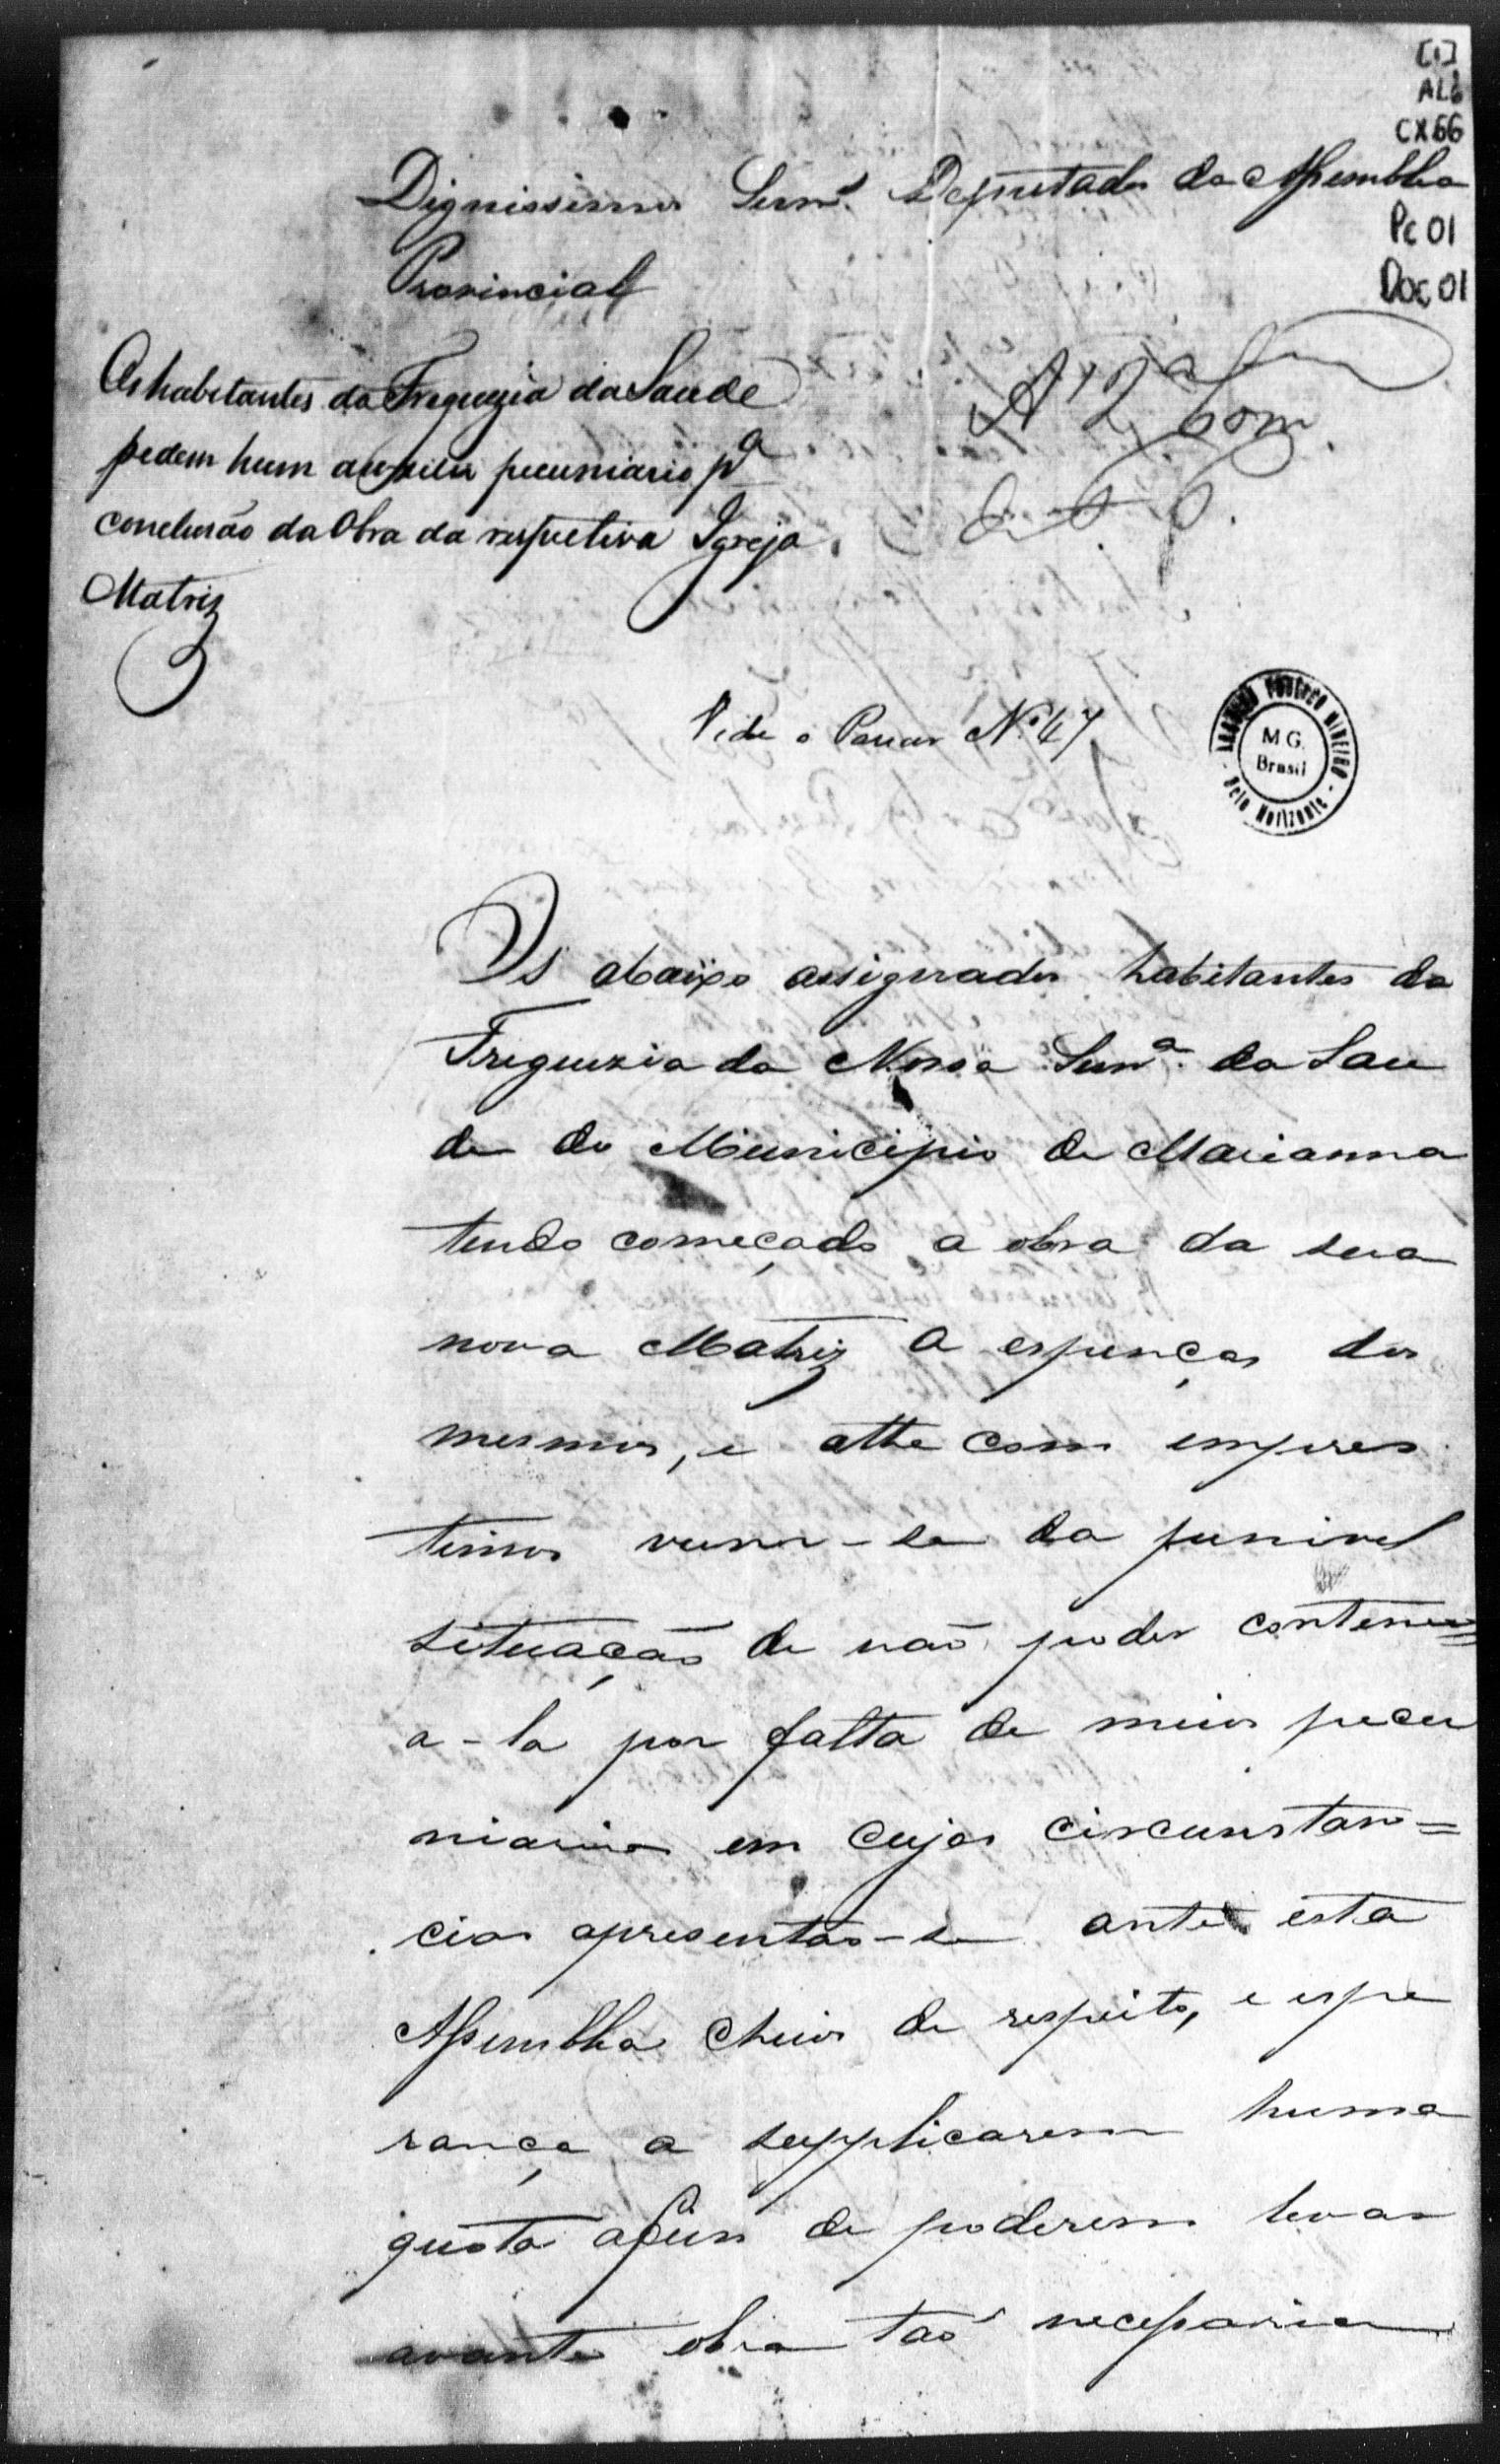 [1]
AL6
CX66
Dignissimos Senr.s Deputados da Assemblea
Pc 01
Provincial
Doc 01
Os habitantes da Freguezia da Saude
pedem hum auxilio pecuniario pa
conclusão da Obra da respectiva Igreja
Matriz
A' 2a Com.
Vide o Parecer No 47
ARQUIVO PUBLICO MINEIRO
M G.
Brasil
Belo Horizonte
Os abaixo assignados habitantes da
Freguezia da Nossa Senra. da Sau
de do Municipio de Marianna
tendo começado a obra da sua
nova Matriz a espenças dos
mesmos, e athe com empres
timos vem-se da penivel
situação de não poder contenu=
a-la por falta de meios pecu
niarios em cujas circunstan=
cias apresentão-se ante esta
Assemblea cheios de respeito, e espe
rança a supplicarem huma
quota afim de poderem levar
avante obra tão necessaria